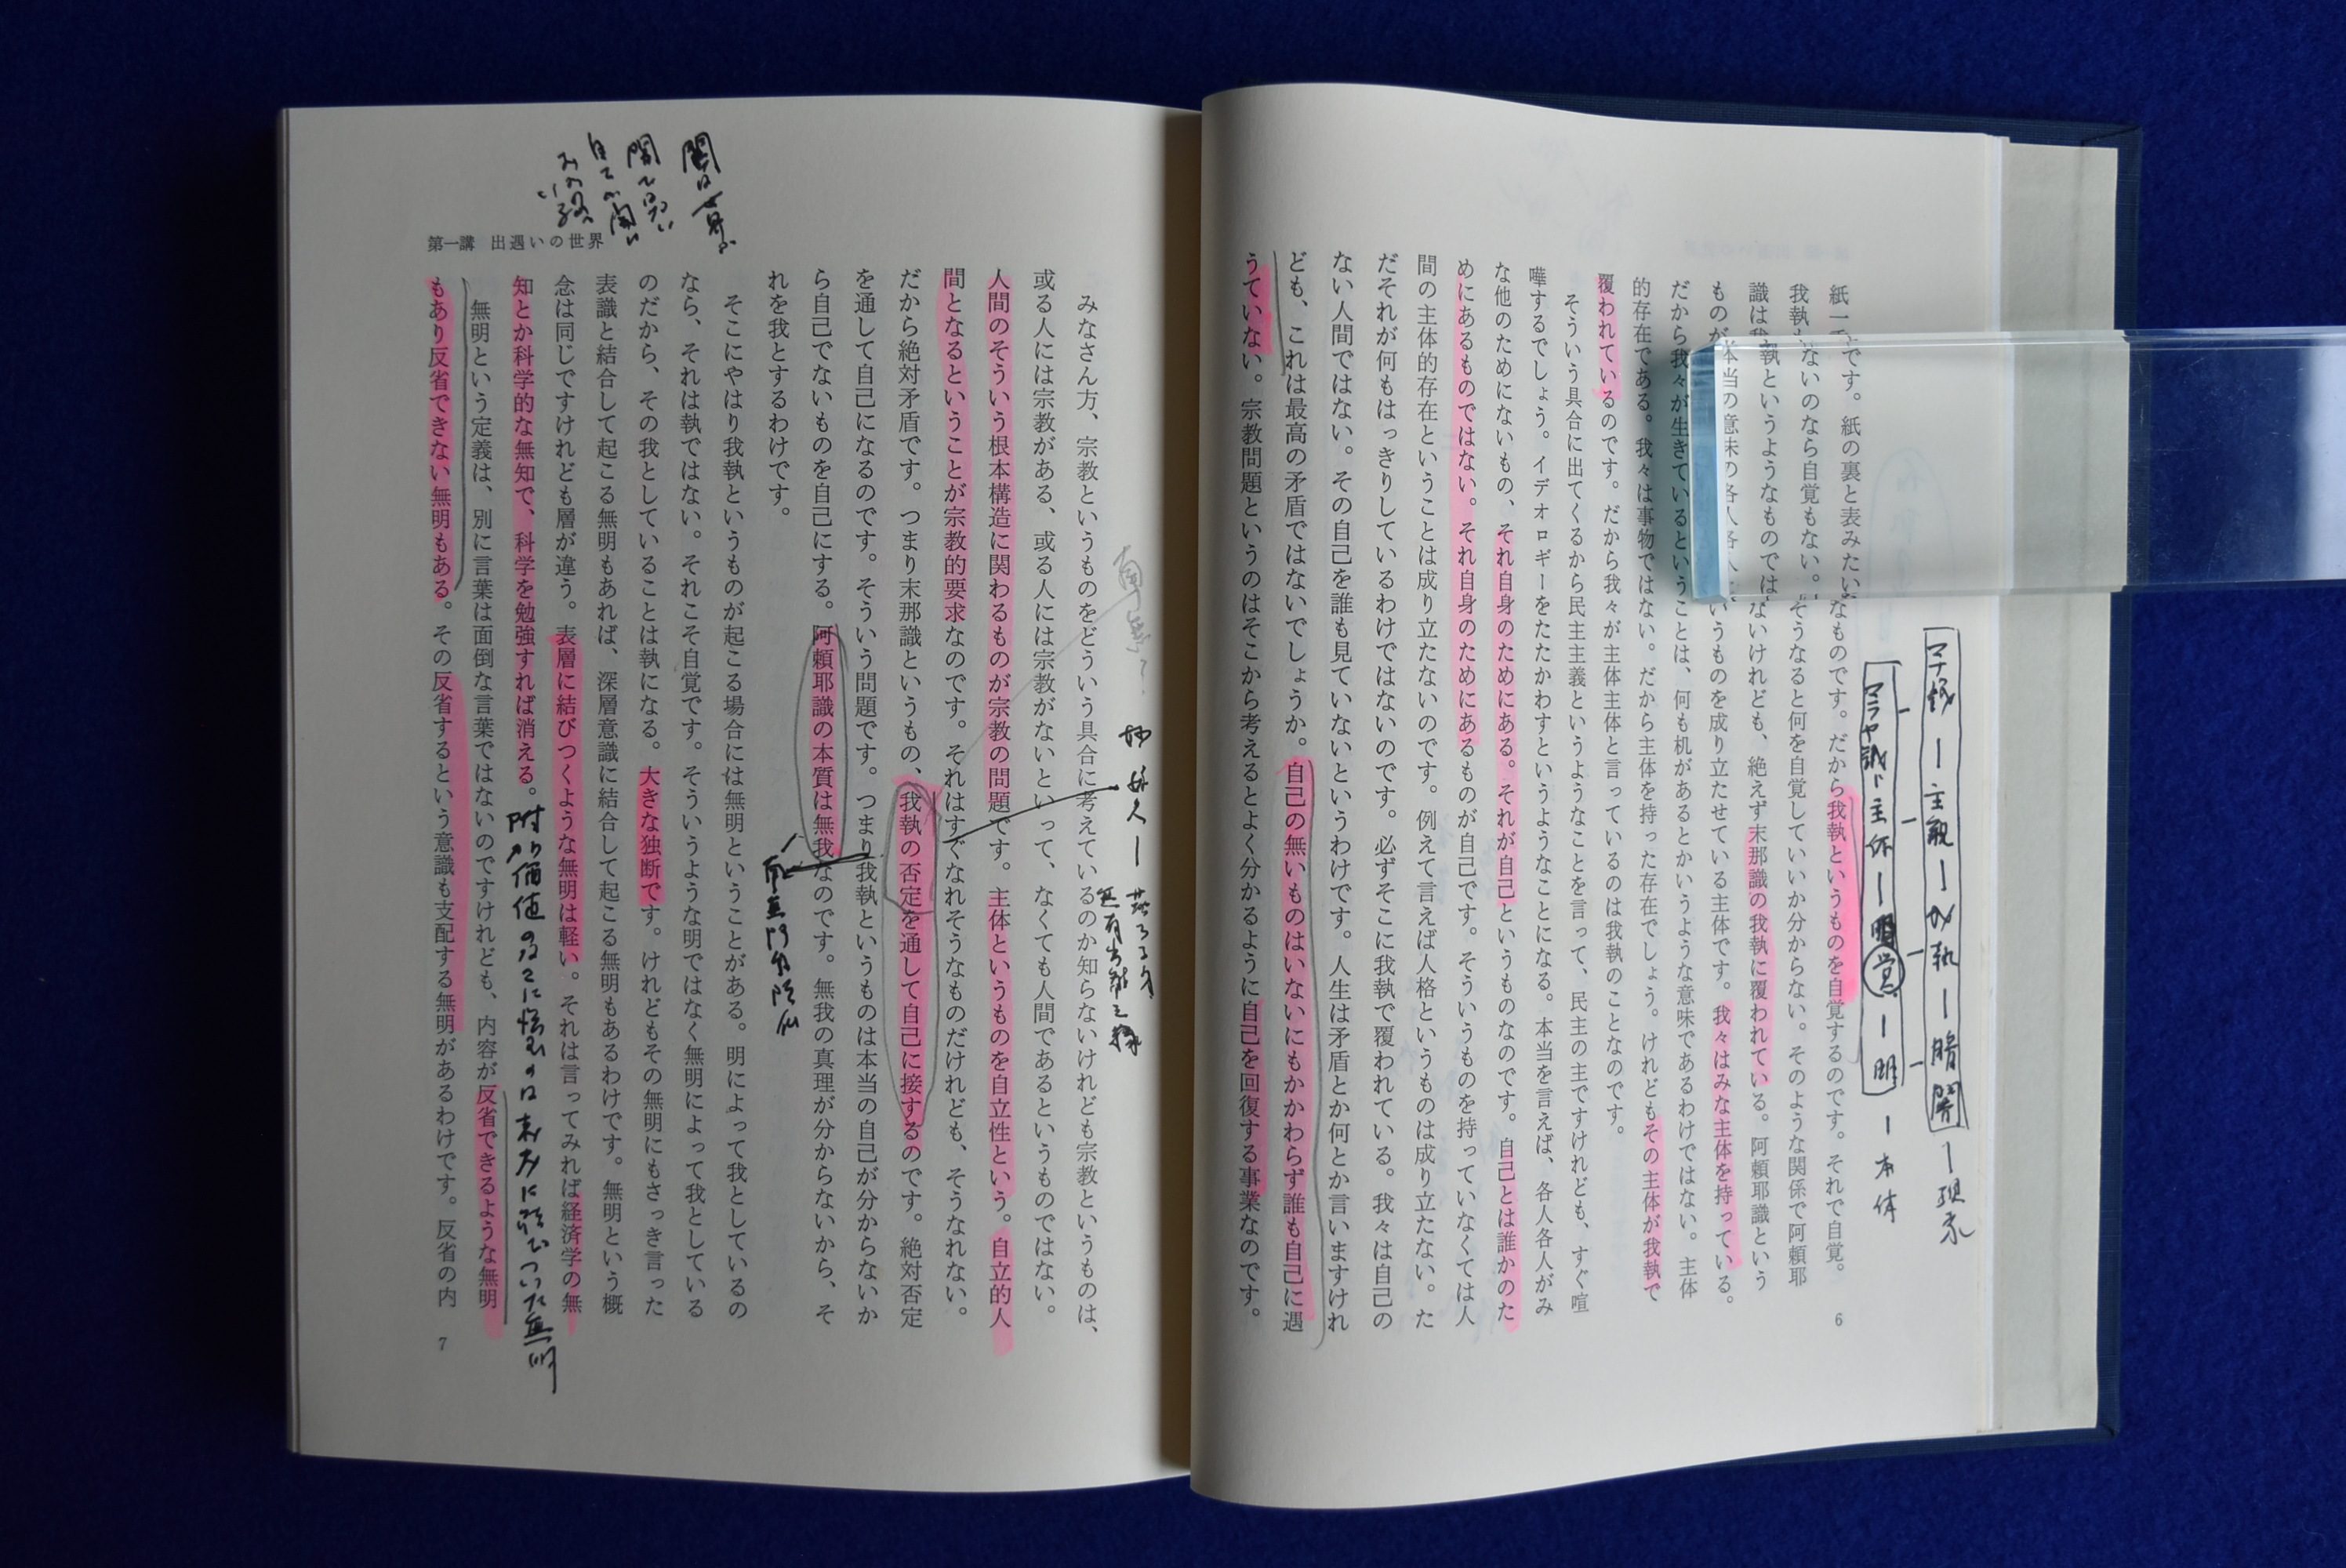 紙一です。紙の裏と表みたいなものです。だから我執というものを自覚するのです。それで自覚。
我執がないのなら自覚もない。そうなると何を自覚していいか分からない。そのような関係で阿頼耶
識は我執というようなものではないけれども、絶えず末那識の我執に覆われている。阿頼耶識という
ものが本当の意味の各人各人というものを成り立たせている主体です。我々はみな主体を持っている。
だから我々が生きているということは、何も机があるとかいうような意味であるわけではない。主体
的存在である。我々は事物ではない。だから主体を持った存在でしょう。けれどもその主体が我執で
覆われているのです。だから我々が主体主体と言っているのは我執のことなのです。
そういう具合に出てくるから民主主義というようなことを言って、民主の主ですけれども、すぐ喧
嘩するでしょう。イデオロギーをたたかわすというようなことになる。本当を言えば、各人各人がみ
な他のためにないもの、それ自身のためにある。それが自己というものなのです。自己とは誰かのた
めにあるものではない。それ自身のためにあるものが自己です。そういうものを持っていなくては人
間の主体的存在ということは成り立たないのです。例えて言えば人格というものは成り立たない。た
だそれが何もはっきりしているわけではないのです。必ずそこに我執で覆われている。我々は自己の
ない人間ではない。その自己を誰も見ていないというわけです。人生は矛盾とか何とか言いますけれ
ども、これは最高の矛盾ではないでしょうか。自己の無いものはいないにもかかわらず誰も自己に遇
うていない。宗教問題というのはそこから考えるとよく分かるように自己を回復する事業なのです。
6
マナ識ー主観ー我執ー暗闇ー現象
アラヤ識ー主体ー覚ー明ー本体
みなさん方、宗教というものをどういう具合に考えているのか知らないけれども宗教というものは、
或る人には宗教がある、或る人には宗教がないといって、なくても人間であるというものではない。
人間のそういう根本構造に関わるものが宗教の問題です。主体というものを自立性という。自立的人
間となるということが宗教的要求なのです。それはすぐなれそうなものだけれども、そうなれない。
だから絶対矛盾です。つまり末那識というもの、我執の否定を通して自己に接するのです。絶対否定
を通して自己になるのです。そういう問題です。つまり我執というものは本当の自己が分からないか
ら自己でないものを自己にする。阿頼耶識の本質は無我なのです。無我の真理が分からないから、そ
れを我とするわけです。
そこにやはり我執というものが起こる場合には無明ということがある。明によって我としているの
なら、それは執ではない。それこそ自覚です。そういうような明ではなく無明によって我としている
のだから、その我としていることは執になる。大きな独断です。けれどもその無明にもさっき言った
表識と結合して起こる無明もあれば、深層意識に結合して起こる無明もあるわけです。無明という概
念は同じですけれども層が違う。表層に結びつくような無明は軽い。それは言ってみれば経済学の無
知とか科学的な無知で、科学を勉強すれば消える。
無明という定義は、別に言葉は面倒な言葉ではないのですけれども、内容が反省できるような無明
もあり反省できない無明もある。その反省するという意識も支配する無明があるわけです。反省の内
第一講　出遇いの世界
7